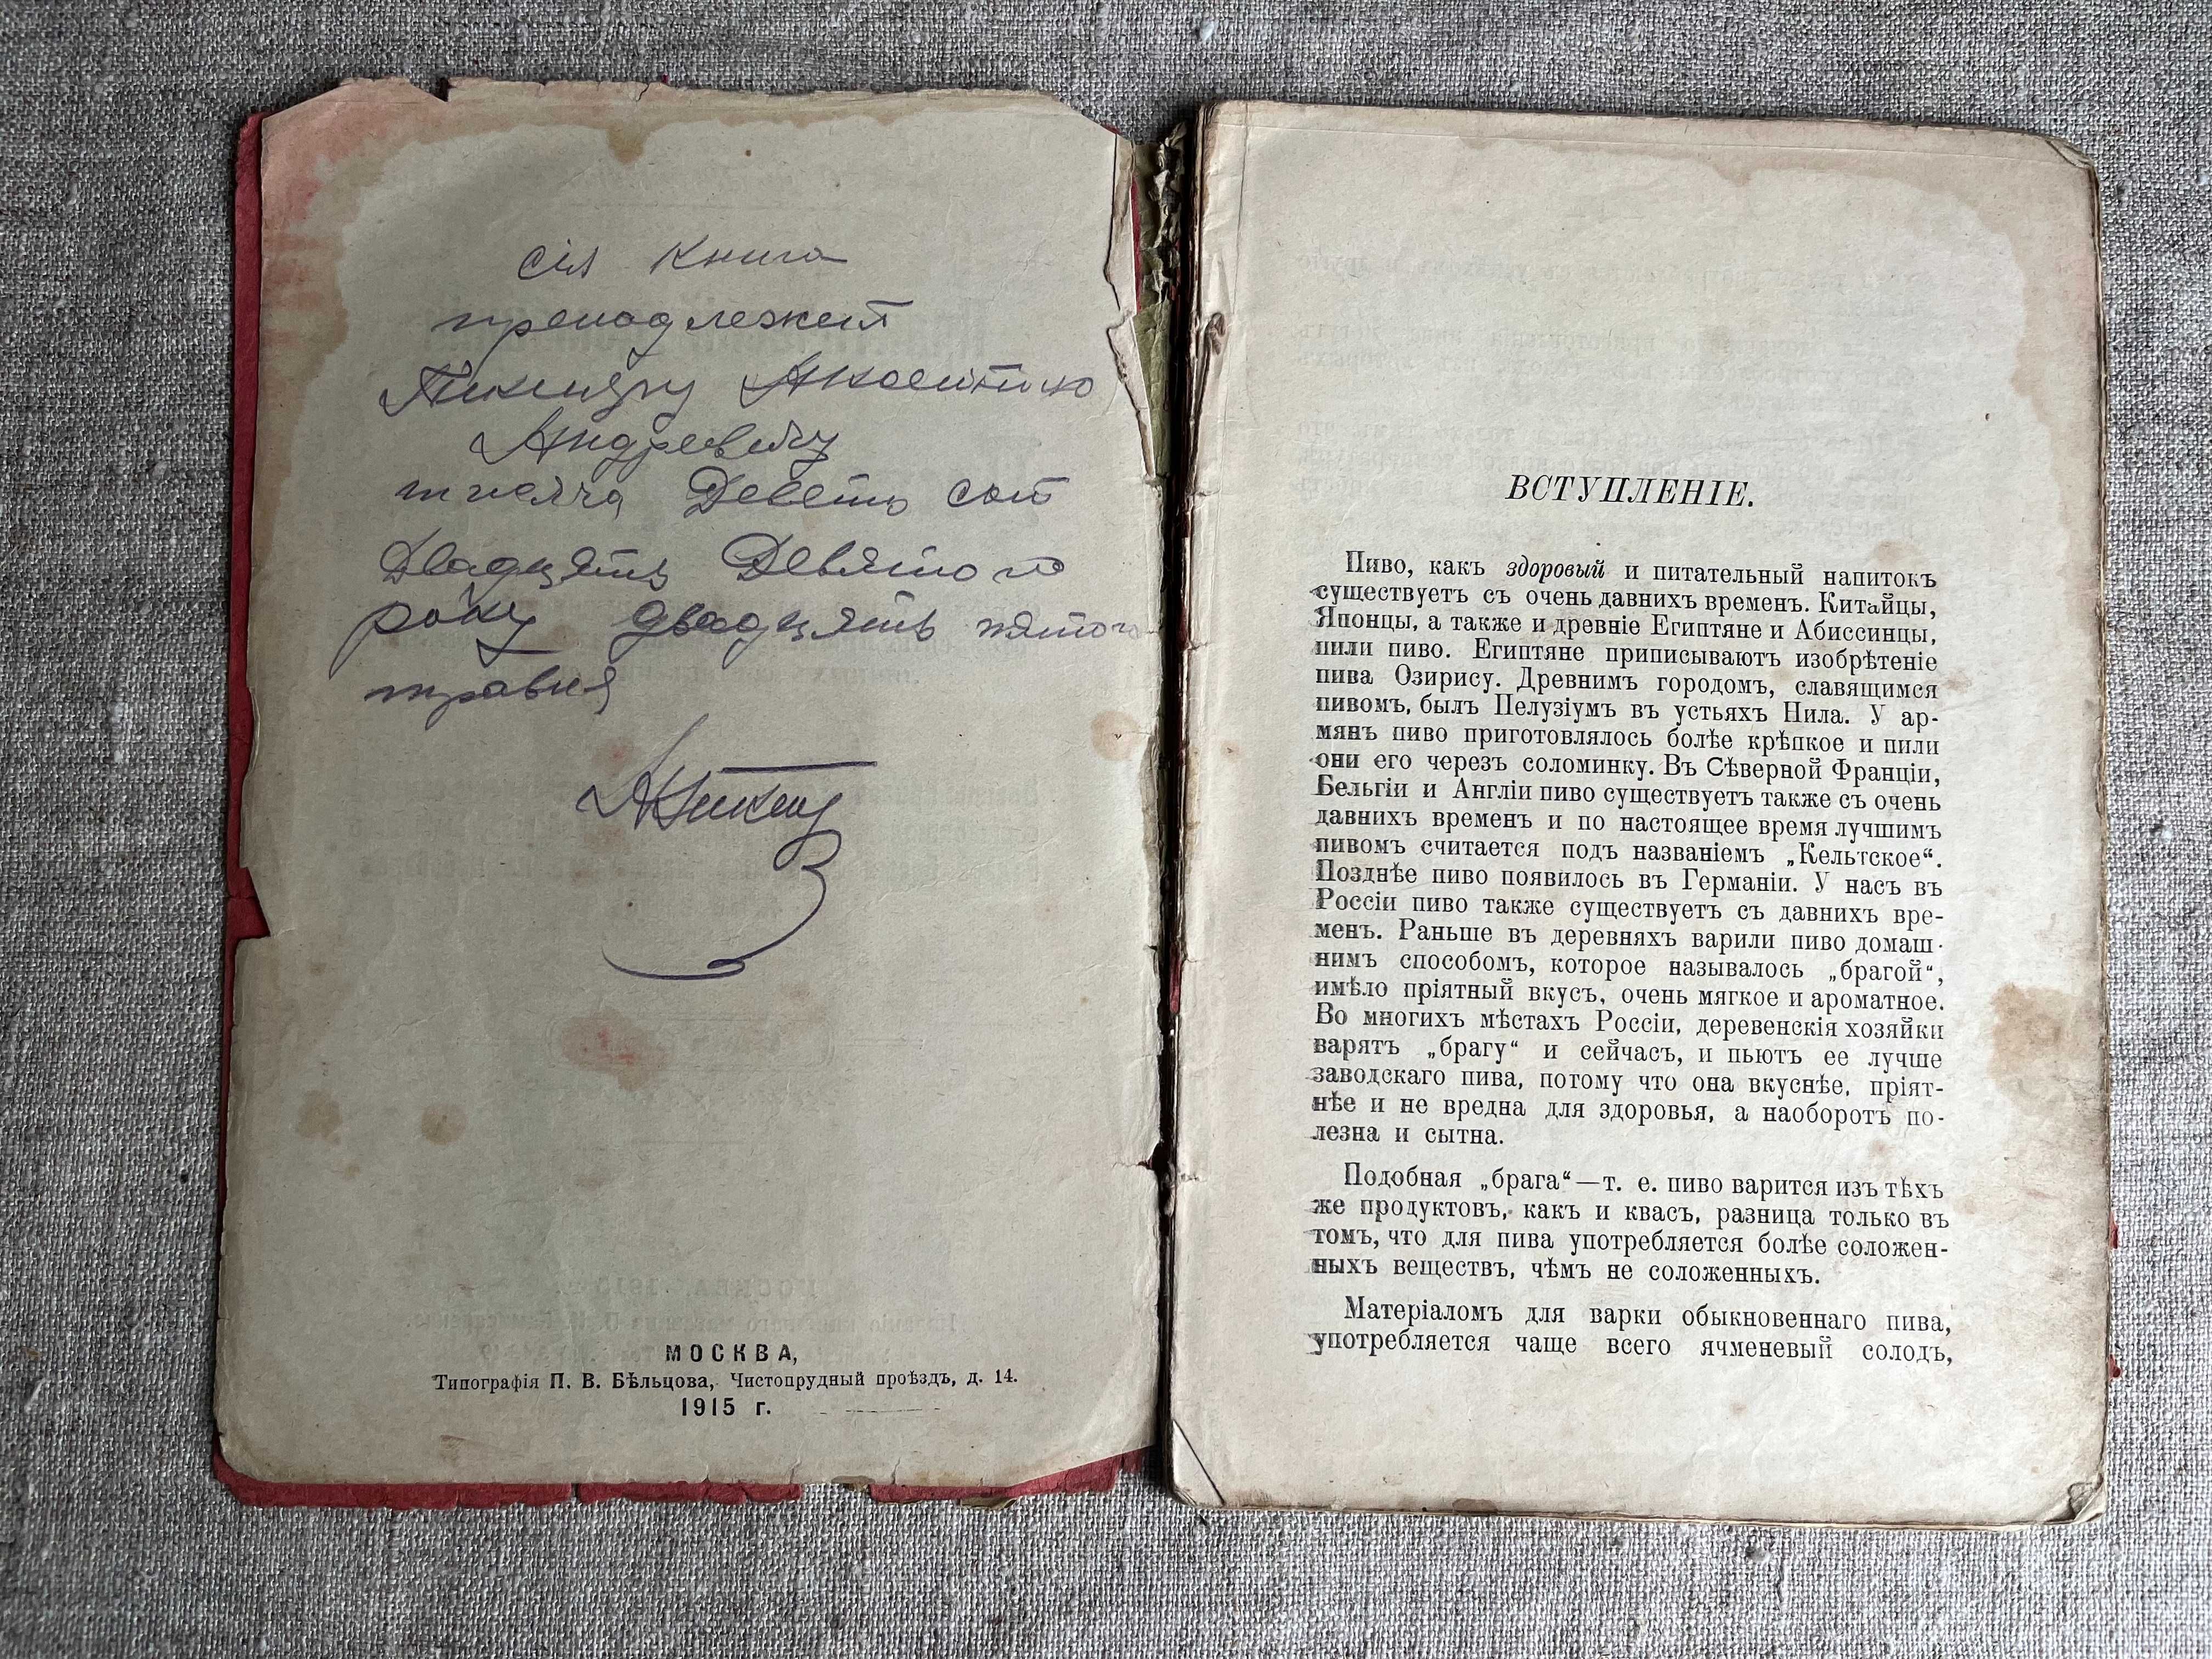 сія книга
преподлежит
Андревичу
тисяча Деветь сот
Двадцять Девятого
року двадцять пятого
травня
МОСКВА,
Типографія П. В. Бѣльцова, Чистопрудный проѣздъ, д. 14.
1915 г.
ВСТУПЛЕНІЕ.
Пиво, какъ здоровый и питательный напитокъ
существуетъ съ очень давнихъ временъ. Китайцы,
Японцы, а также и древніе Египтяне и Абиссинцы,
пили пиво. Египтяне приписываютъ изобрѣтеніе
пива Озирису. Древнимъ городомъ, славящимся
пивомъ, былъ Пелузіумъ въ устьяхъ Нила. У ар-
мянъ пиво приготовлялось болѣе крѣпкое и пили
они его черезъ соломинку. Въ Сѣверной Франціи,
Бельгіи и Англіи пиво существуетъ также съ очень
давнихъ временъ и по настоящее время лучшимъ
пивомъ считается подъ названіемъ „Кельтское“.
Позднѣе пиво появилось въ Германіи. У насъ въ
Россіи пиво также существуетъ съ давнихъ вре-
менъ. Раньше въ деревняхъ варили пиво домаш-
нимъ способомъ, которое называлось „брагой“,
имѣло пріятный вкусъ, очень мягкое и ароматное.
Во многихъ мѣстахъ Россіи, деревенскія хозяйки
варятъ „брагу“ и сейчасъ, и пьютъ ее лучше
заводскаго пива, потому что она вкуснѣе, пріят-
нѣе и не вредна для здоровья, а наоборотъ по-
лезна и сытна.
Подобная „брага“—т. е. пиво варится изъ тѣхъ
же продуктовъ, какъ и квасъ, разница только въ
томъ, что для пива употребляется болѣе соложен-
ныхъ веществъ, чѣмъ не соложенныхъ.
Матеріаломъ для варки обыкновеннаго пива,
употребляется чаще всего ячменевый солодъ,